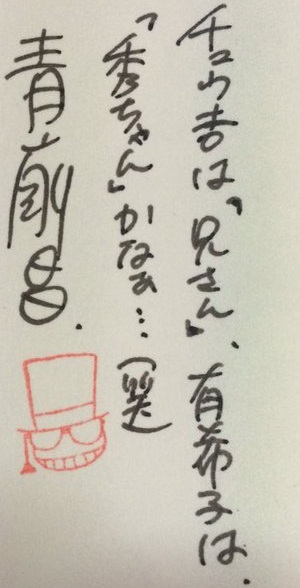 チュウ吉は「兄さん」、有希子は.
「秀ちゃん」かなぁ…(笑)
青山剛昌.